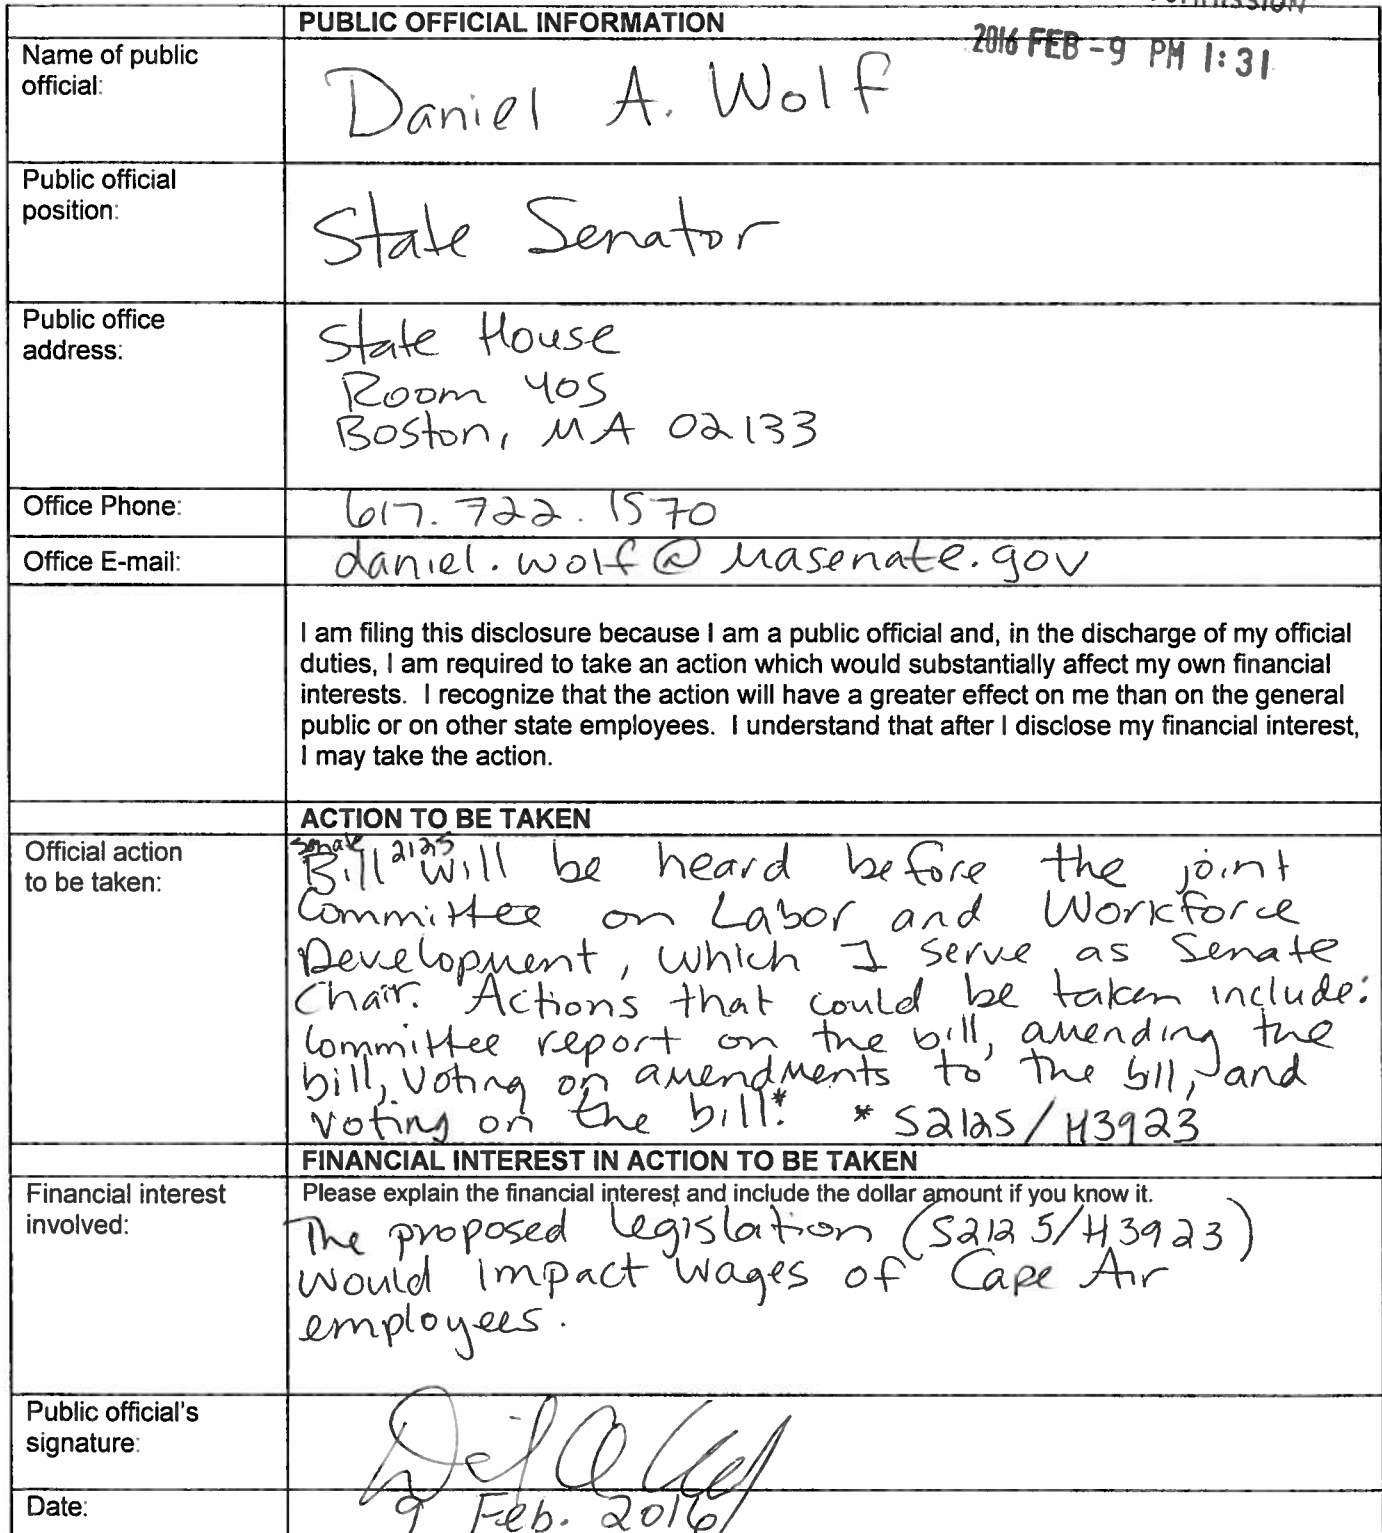 PUBLIC OFFICIAL INFORMATION
2016 FEB -9 PM 1:31
Name of public
official:
Daniel A. Wolf
Public official
position:
State Senator
Public office
address:
State House
Room 405
Boston, MA 02133
Office Phone:
617.722.1570
Office E-mail:
daniel.wolf@masenate.gov
I am filing this disclosure because I am a public official and, in the discharge of my official
duties, I am required to take an action which would substantially affect my own financial
interests. I recognize that the action will have a greater effect on me than on the general
public or on other state employees. I understand that after I disclose my financial interest,
I may take the action.
ACTION TO BE TAKEN
Official action
to be taken:
Senate Bill 2125 will be heard before the joint
Committee on Labor and Workforce
Development, which I serve as Senate
Chair. Actions that could be taken include:
Committee report on the bill, amending the
bill, voting on amendments to the bill, and
voting on the bill.* * S2125/H3923
FINANCIAL INTEREST IN ACTION TO BE TAKEN
Financial interest
involved:
Please explain the financial interest and include the dollar amount if you know it.
The proposed legislation (S2125/H3923)
would impact wages of Cape Air
employees.
Public official's
signature:
Date:
9 Feb. 2016